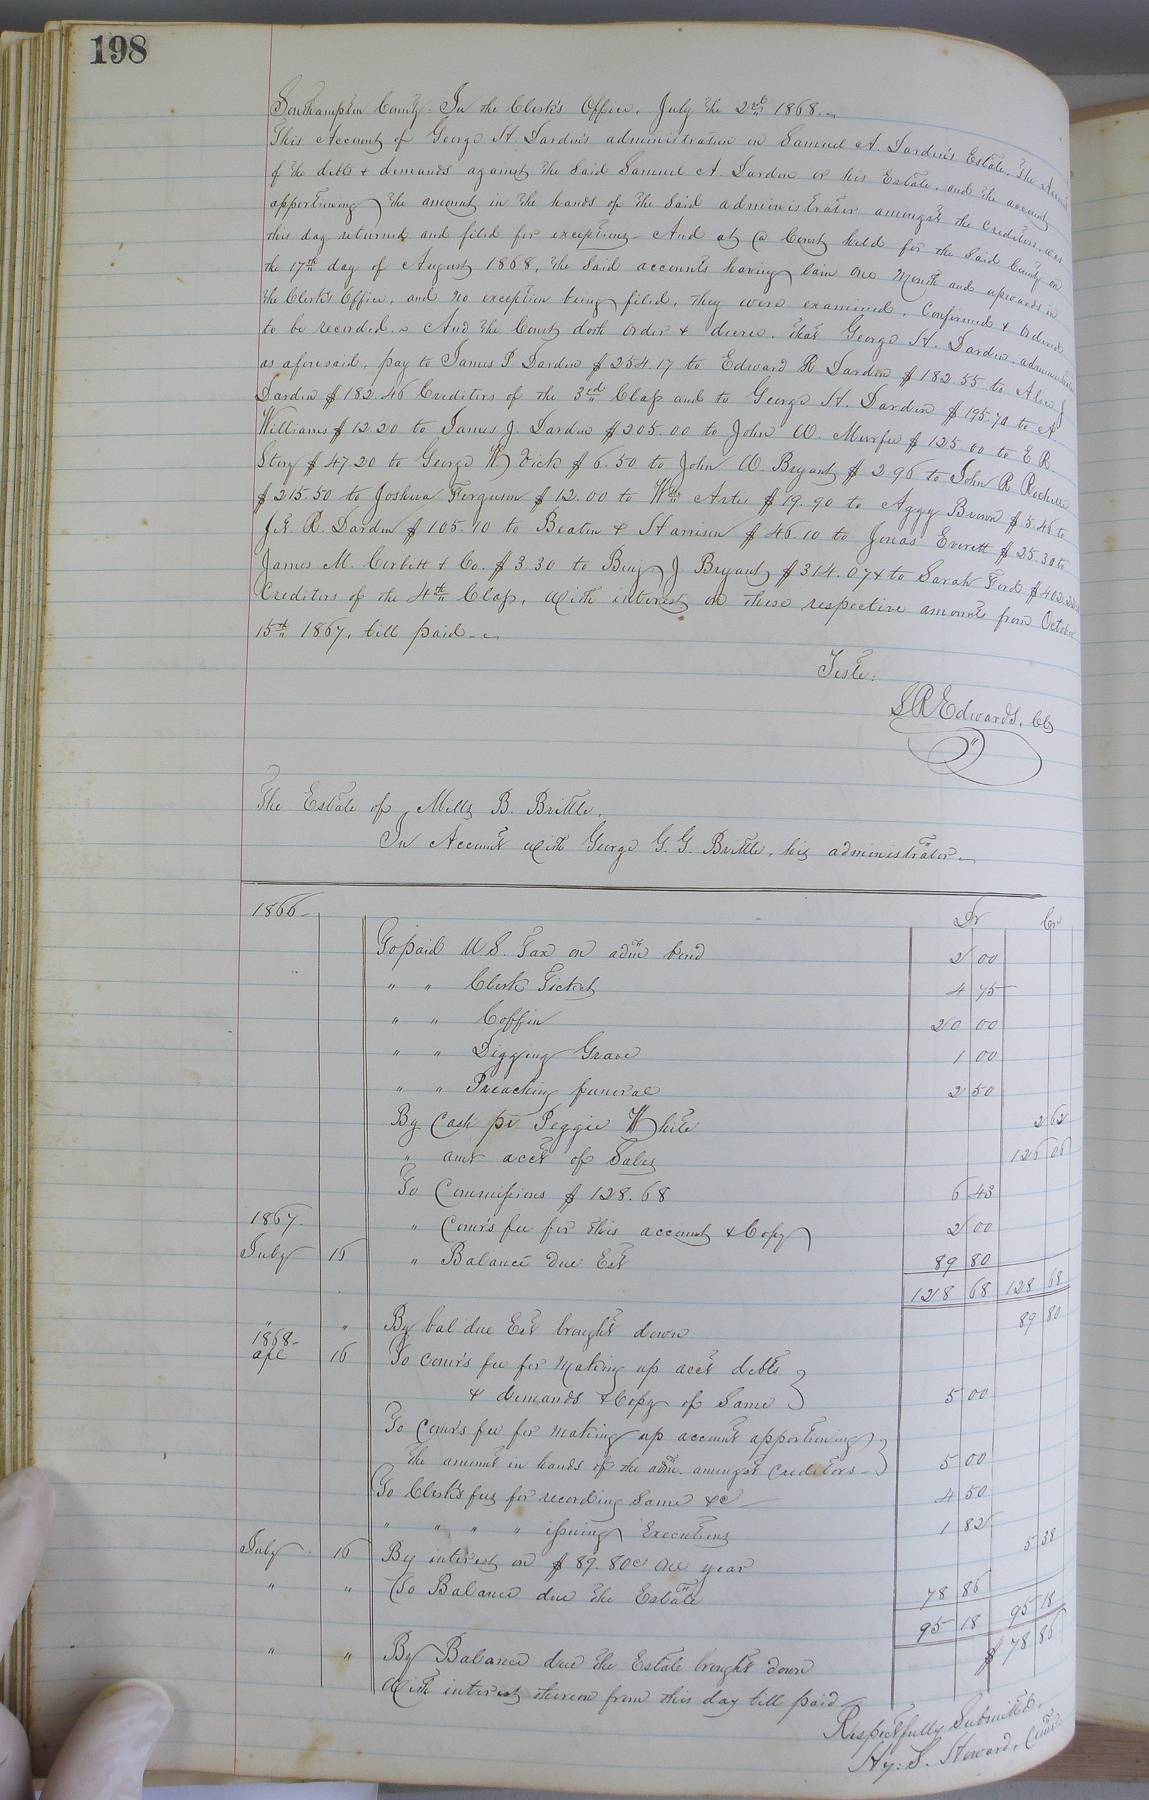 198
Southampton County. In the Clerk's Office, July the 2nd 1868.
This Account of George H. Darden's administration on Samuel A. Darden's Estate, The Account
of the debts & demands against the Said Samuel A. Darden or his Estate, and the account
apportioning the amount in the hands of the Said administrator amongst the Creditors was
this day returned and filed for exceptions. And at a Court held for the Said County on
the 17th day of August 1868, the Said accounts having lain one Month and upwards in
the Clerk's Office, and no exception being filed, they were examined, Confirmed & Ordered
to be recorded. And the Court doth order & decree, that George H. Darden, administrator
as aforesaid, pay to James P Darden $254.17 to Edward R Darden $182.55 to
Darden $182.46 Creditors of the 3rd Class and to George H. Darden to A
Williams $12.20 to James J. Darden $205.00 to John W. Murfee $125.00 to E. R.
Story $47.20 to George W Vick $6.50 to John W. Bryant $2.96 to John R. Rochelle
$215.50 to Joshua Ferguson $12.00 to Wm Artis $19.90 to Aggy Brown $5.46 to
R. Darden $105.10 to Beaton & Harrison $46.10 to Jonas Everett $25.30 to
James M. Corbitt & Co. $3.30 to Benj J Bryant $314.07 & to Sarah Ford
Creditors of the 4th Class, With interest on these respective amounts from October
15th 1867, till paid.
Teste:
L R Edwards, Clk
The Estate of Mills B. Brittle,
In Account with George G. G. Brittle, his administrator.
1866 Dr Cr
To paid U.S. Tax on adm bond 2 00
" " Clerk Ticket 4 75
" " Coffin 20 00
" " Digging Grave 1 00
" " Preaching funeral 2 50
By Cash pr Peggie White 2 62
" amt acct of Sales 126 06
To Commissions $128.68 6 43
1867. " Comr's fee for this account & Copy 2 00
July 16 " Balance due Est 89 80
128 68 128 68
" " By bal due Est brought down 89 80
1868
apl 16 To comr's fee for Making up acct debts
& demands & Copy of Same 5 00
To Comr's fee for making up account apportioning
the amount in hands of the adm. amongst Creditors 5 00
To Clerk's fees for recording Same &c 4 50
" " " " issuing Executions 1 82
July 16 By interest on $89.80c one year 5 38
" " To Balance due the Estate 78 86
95 18 95 18
" " By Balance due the Estate brought down $78 86
With interest thereon from this day till paid
Respectfully Submitted,
Hy: S. Steward, Comr